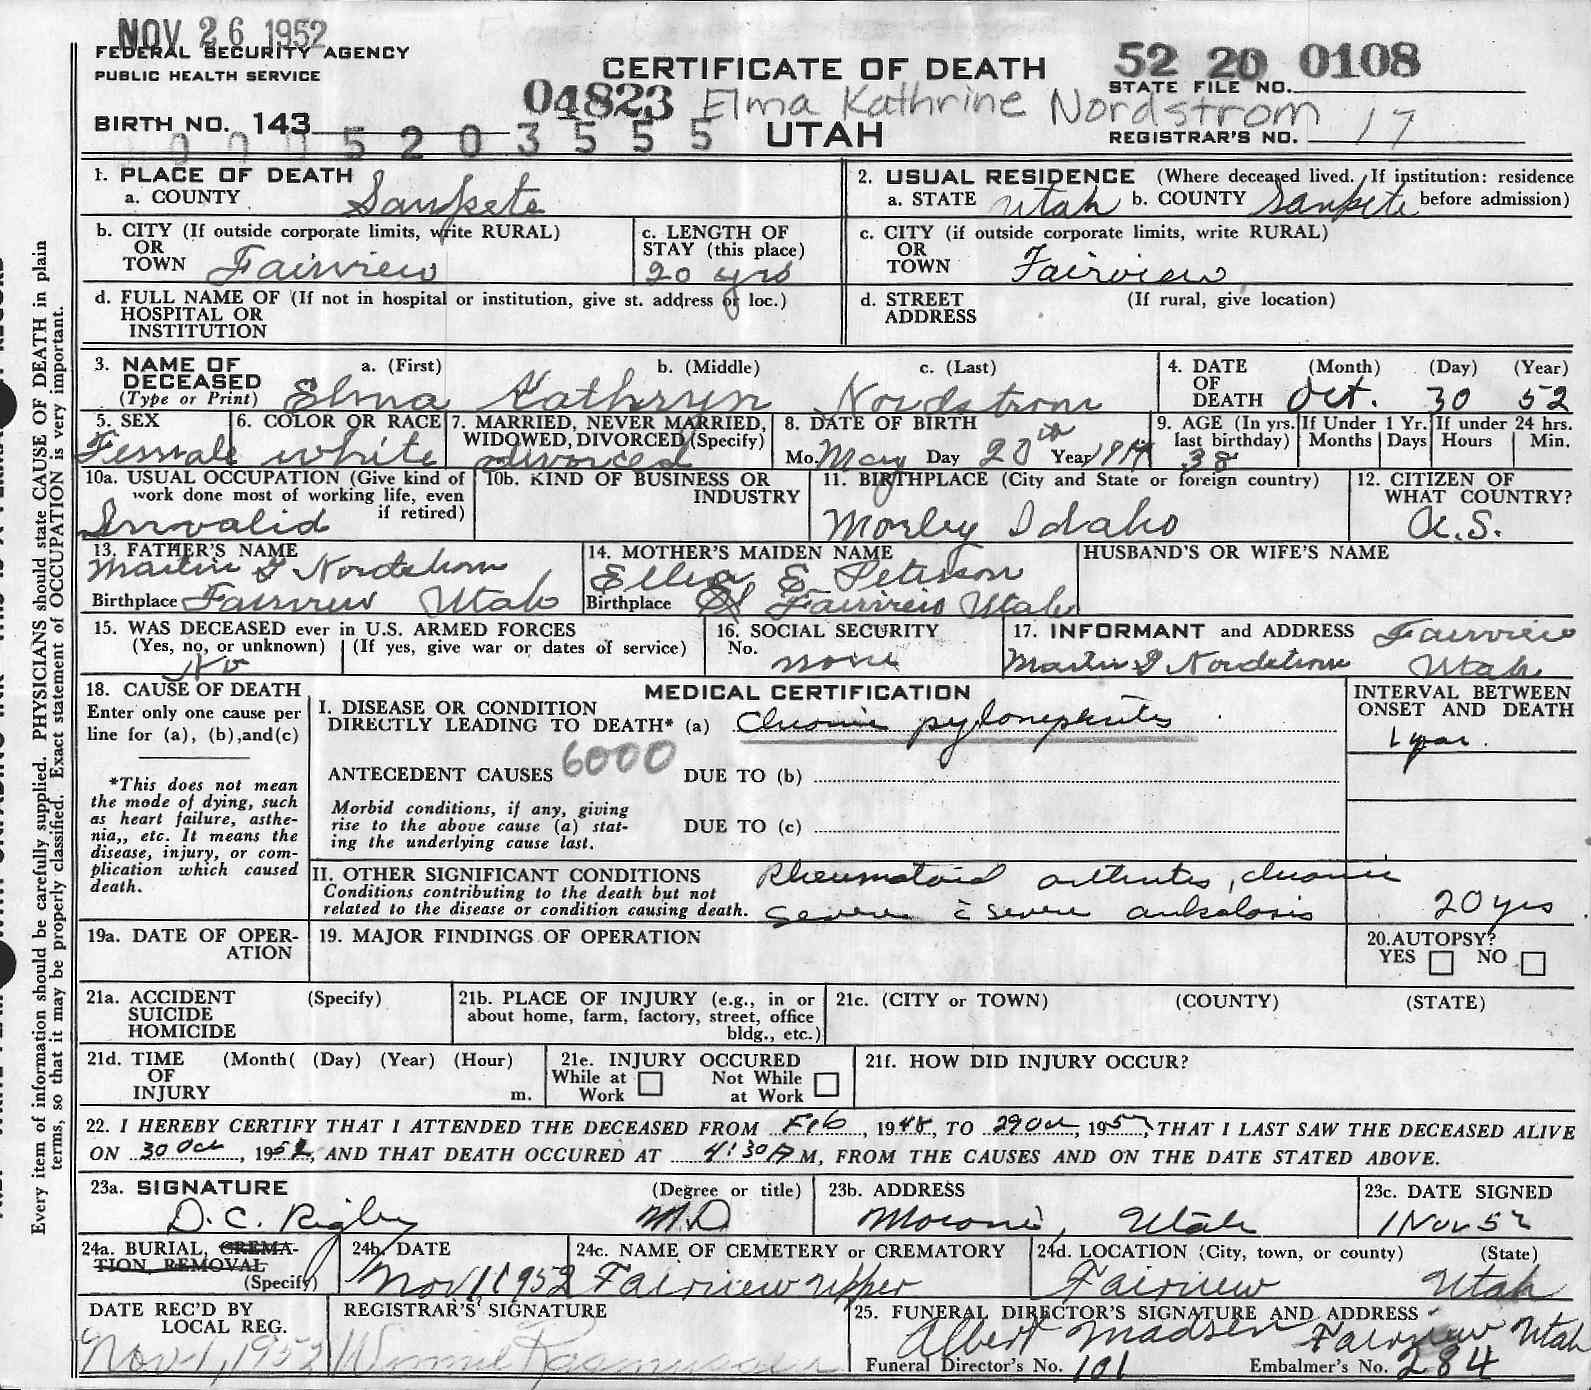 NOV 26 1952
FEDERAL SECURITY AGENCY
PUBLIC HEALTH SERVICE
CERTIFICATE OF DEATH
52 20 0108
STATE FILE NO.
04823 Elma Kathrine Nordstrom
BIRTH NO. 143
0 0 0 5 2 0 3 5 5 5
UTAH
REGISTRAR'S NO. 17
1. PLACE OF DEATH
a. COUNTY Sanpete
2. USUAL RESIDENCE (Where deceased lived. If institution: residence
a. STATE Utah b. COUNTY Sanpete before admission)
b. CITY (If outside corporate limits, write RURAL)
OR
TOWN Fairview
c. LENGTH OF
STAY (this place)
20 yrs
c. CITY (if outside corporate limits, write RURAL)
OR
TOWN Fairview
d. FULL NAME OF (If not in hospital or institution, give st. address or loc.)
HOSPITAL OR
INSTITUTION
d. STREET (If rural, give location)
ADDRESS
3. NAME OF a. (First) b. (Middle) c. (Last)
DECEASED
(Type or Print) Elma Kathryn Nordstrom
4. DATE (Month) (Day) (Year)
OF
DEATH Oct. 30 52
5. SEX
Female
6. COLOR OR RACE
white
7. MARRIED, NEVER MARRIED,
WIDOWED, DIVORCED (Specify)
divorced
8. DATE OF BIRTH
Mo. May Day 20th Year 1914
9. AGE (In yrs.
last birthday)
38
If Under 1 Yr.
Months Days
If under 24 hrs.
Hours Min.
10a. USUAL OCCUPATION (Give kind of
work done most of working life, even
if retired)
Invalid
10b. KIND OF BUSINESS OR
INDUSTRY
11. BIRTHPLACE (City and State or foreign country)
Morley Idaho
12. CITIZEN OF
WHAT COUNTRY?
U.S.
13. FATHER'S NAME
Martin G Nordstrom
Birthplace Fairview Utah
14. MOTHER'S MAIDEN NAME
Ellen E Peterson
Birthplace Fairview Utah
HUSBAND'S OR WIFE'S NAME
15. WAS DECEASED ever in U.S. ARMED FORCES
(Yes, no, or unknown) (If yes, give war or dates of service)
No
16. SOCIAL SECURITY
No. none
17. INFORMANT and ADDRESS Fairview
Martin G Nordstrom Utah
18. CAUSE OF DEATH
Enter only one cause per
line for (a), (b),and(c)
*This does not mean
the mode of dying, such
as heart failure, asthe-
nia,, etc. It means the
disease, injury, or com-
plication which caused
death.
MEDICAL CERTIFICATION
I. DISEASE OR CONDITION
DIRECTLY LEADING TO DEATH* (a) Chronic pylonephritis
INTERVAL BETWEEN
ONSET AND DEATH
1 year.
ANTECEDENT CAUSES 6000 DUE TO (b)
Morbid conditions, if any, giving
rise to the above cause (a) stat-
ing the underlying cause last.
DUE TO (c)
II. OTHER SIGNIFICANT CONDITIONS
Conditions contributing to the death but not
related to the disease or condition causing death.
Rheumatoid arthritis, chronic
severe c̄ severe ankalosis
20 yrs
19a. DATE OF OPER-
ATION
19. MAJOR FINDINGS OF OPERATION
20.AUTOPSY?
YES NO
21a. ACCIDENT (Specify)
SUICIDE
HOMICIDE
21b. PLACE OF INJURY (e.g., in or
about home, farm, factory, street, office
bldg., etc.)
21c. (CITY or TOWN) (COUNTY) (STATE)
21d. TIME (Month( (Day) (Year) (Hour)
OF
INJURY m.
21e. INJURY OCCURED
While at Not While
Work at Work
21f. HOW DID INJURY OCCUR?
22. I HEREBY CERTIFY THAT I ATTENDED THE DECEASED FROM Feb, 1948, TO 29 Oct, 1952, THAT I LAST SAW THE DECEASED ALIVE
ON 30 Oct, 1952, AND THAT DEATH OCCURED AT 4:30 A M, FROM THE CAUSES AND ON THE DATE STATED ABOVE.
23a. SIGNATURE (Degree or title)
D. C. Rigby M.D
23b. ADDRESS
Moroni, Utah
23c. DATE SIGNED
1 Nov 52
24a. BURIAL, CREMA-
TION, REMOVAL
(Specify)
24b. DATE
Nov 1 1952
24c. NAME OF CEMETERY or CREMATORY
Fairview Upper
24d. LOCATION (City, town, or county) (State)
Fairview Utah
DATE REC'D BY
LOCAL REG.
Nov. 1, 1952
REGISTRAR'S SIGNATURE
Winnie Rasmussen
25. FUNERAL DIRECTOR'S SIGNATURE AND ADDRESS
Albert Madsen Fairview Utah
Funeral Director's No. 101 Embalmer's No. 284
Every item of information should be carefully supplied. PHYSICIANS should state CAUSE OF DEATH in plain
terms, so that it may be properly classified. Exact statement of OCCUPATION is very important.